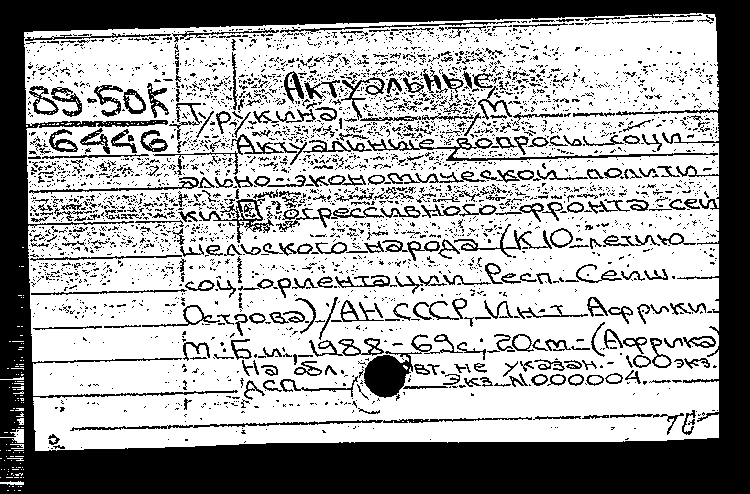 Актуальные
89-50К
6446
Турукина, Г. М.
Актуальные вопросы соци-
ально-экономической полити-
ки Прогрессивного фронта сей
шельского народа (К 10-летию
соц. ориентации Респ. Сейш.
Острова) / АН СССР, Ин-т Африки.-
М.: Б. и., 1988.- 69с.; 20см.- (Африка)
На обл. авт. не указан.- 100экз.
ДСП. Экз. N000004.